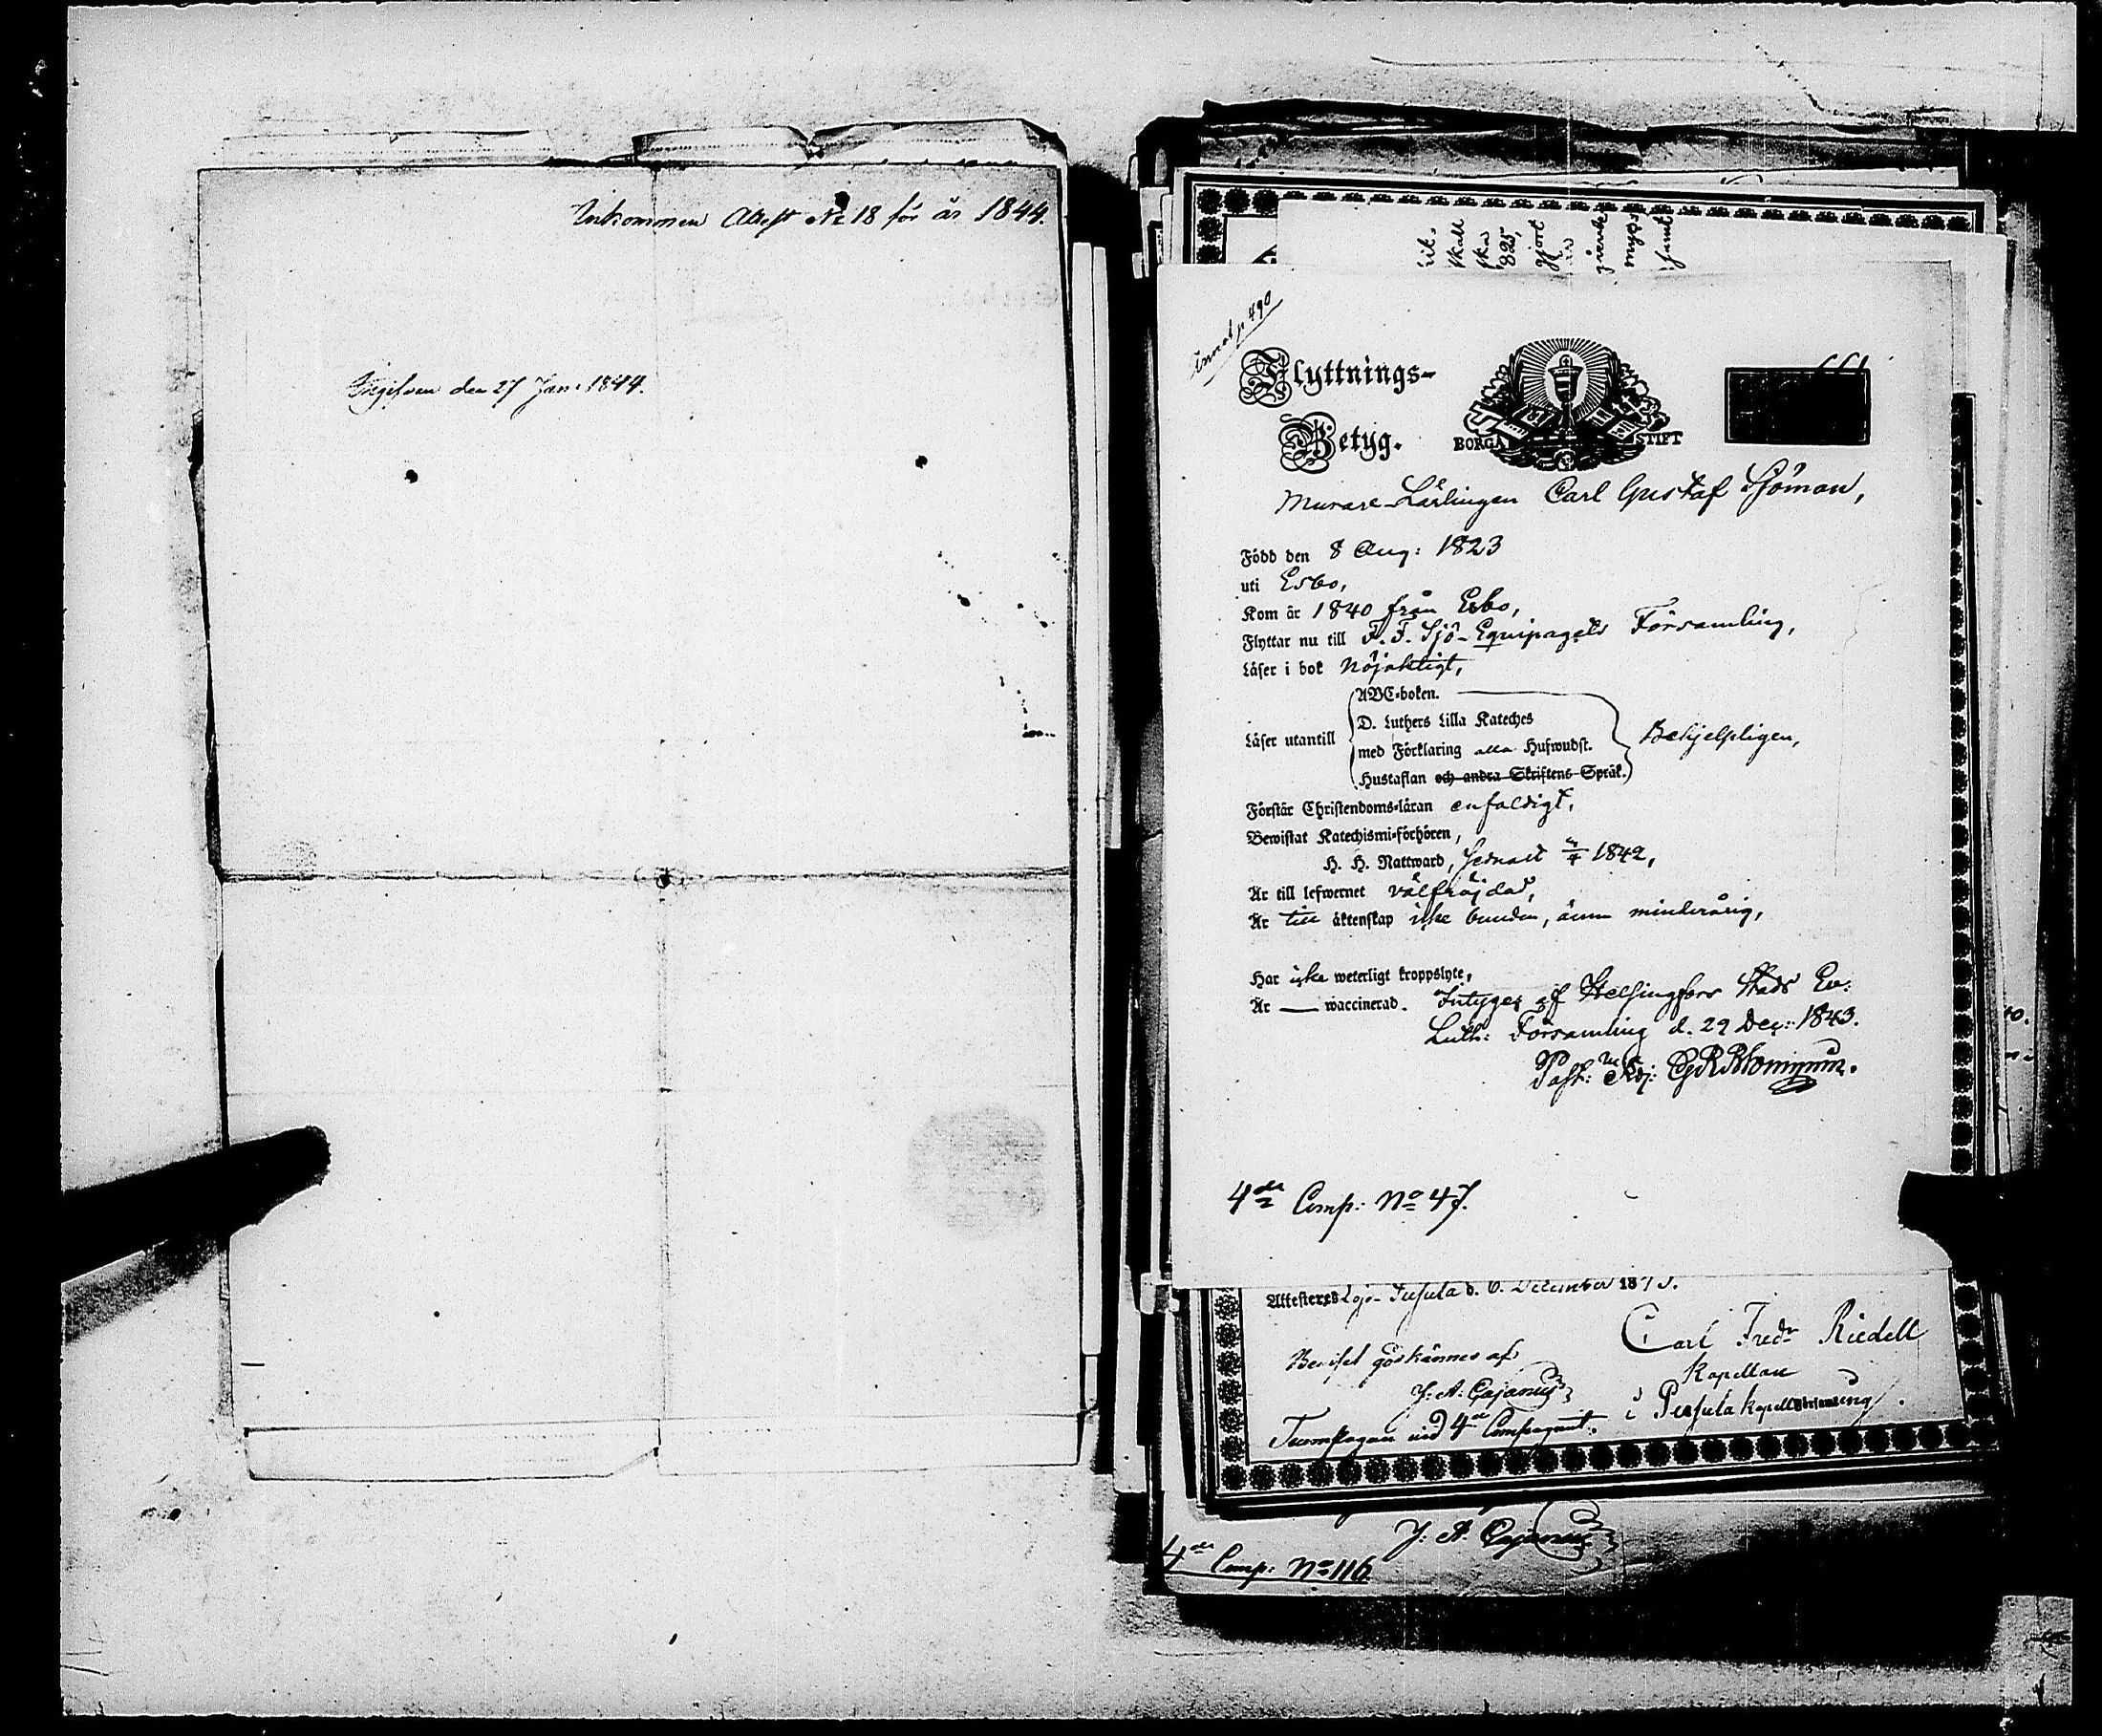 Inkommen Attest No 18 för år 1844.
Ingifven den 27 Jan: 1844.
rik.
skall
ska
825,
gjort
Flyttnings-
Betyg.
BORGÅ STIFT
Murare-Lärlingen Carl Gustaf Sjöman,
Född den 8 Aug: 1823
uti Esbo,
Kom år 1840 från Esbo,
Flyttar nu till F. F. Sjö-Equipagets Församling,
Läser i bok nöjaktigt,
Läser utantill
ABC-boken.
D. Luthers Lilla Kateches
med Förklaring alla Hufwudst.
Hustaflan och andra Skriftens Språk.
Behjelpligen,
Förstår Christendoms-läran enfaldigt,
Bewistat Katechismi-förhören,
H. H. Nattward, senast 1842,
Är till lefwernet välfräjdad,
Är till äktenskap icke bunden, ännu minderårig,
Har icke weterligt kroppslyte,
Är — waccinerad. Intygas af Helsingfors Stads Ev:
Luth: Församling d. 29 Dec: 1843.
Past: Adj:
4de Comp: No 47.
Attesteres Lojo-Pusula d. 6. December 1843.
Carl Fredr Riedell
Beviset godkännes af
Kapellan
J: A: Cajanus
i Pusula Kapellförsamling.
vid 4de Compagniet.
J: A. Cajanus
4de Comp: No 116